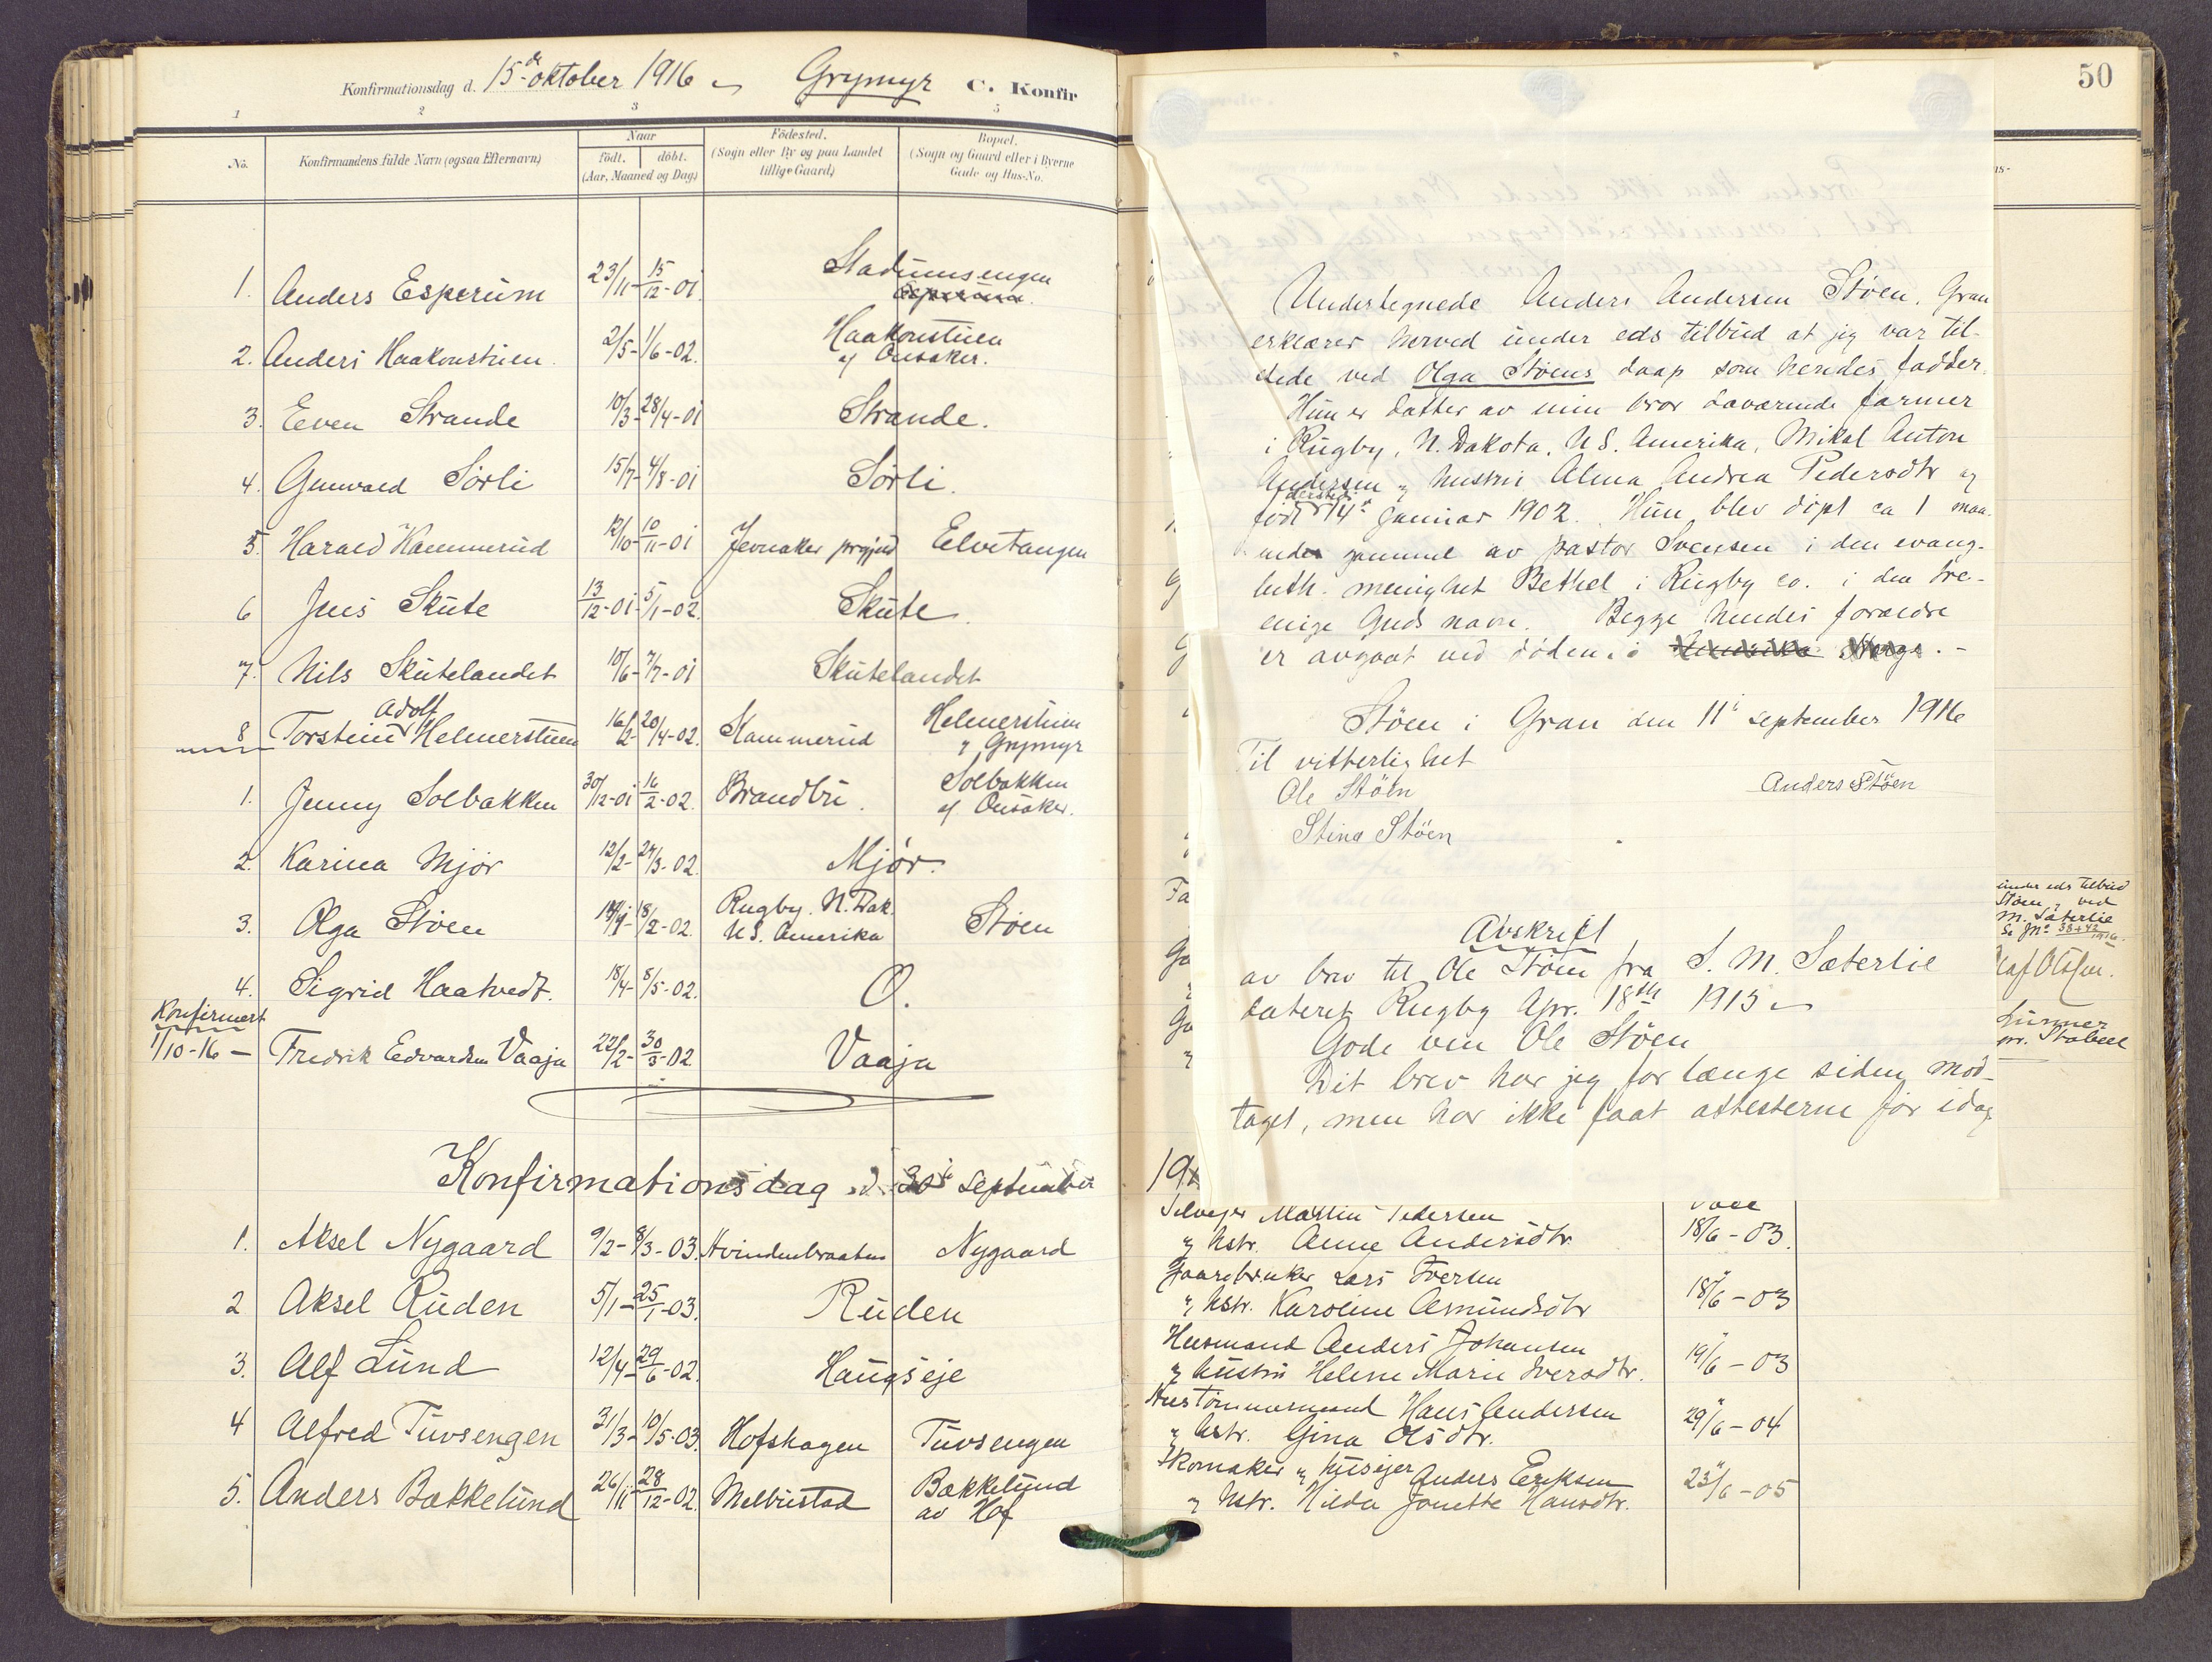 Konfirmationsdag d. 15de oktober 1916 Grymyr C. Konfir
1 2 3 5
No. Konfirmandens fulde Navn (ogsaa Efternavn) Naar födt. döbt. (Aar, Maaned og Dag) Födested. (Sogn eller By og paa Landet tillige Gaard) Bopæl. (Sogn og Gaard eller i Byerne Gade og Hus-No.
1. Anders Esperum 23/11- 15/12-01. Stadumsengen
2. Anders Haakonstuen. 2/5- 1/6-02. Haakonstuen
af Onsaker.
3. Even Strande 10/3- 28/4-01 Strande.
4. Gunvald Sörli 15/7- 4/8-01 Sörli.
5. Harald Hammerud 12/10- 10/11-01 Jevnaker prgjed Elvetangen
6 Jens Skute 13/12-01- 5/1-02. Skute
7. Nils Skutelandet 10/6- 7/7-01 Skutelandet
8 Torstein Adolf Helmerstuen 16/2- 20/4-02. Hammerud Helmerstuen
y Grymyr
1. Jenny Solbakken 30/12-01 16/2-02. Brandbu. Solbakken
af Onsaker.
2. Karina Mjör 12/2- 24/3-02. Mjör.
3. Olga Stöen 14/1- 18/2-02. Rugby. N. Dak.
U.S. Amerika Stöen
4. Sigrid Haatvedt. 18/4- 8/5-02. O.
Konfirmert
1/10-16 — Fredrik Edvardsen Vaaja 22/2- 30/3-02 Vaaja
Konfirmationsdag d. 30te september
1. Aksel Nygaard 9/2- 8/3-03. Hvindenbraaten Nygaard
2 Aksel Ruden 5/1- 25/1-03. Ruden
3. Alf Lund 12/4- 29/6-02. Haugseje
4 Alfred Tuvsengen 31/3- 10/5-03. Hofshagen Tuvsengen
5. Anders Bakkelund 26/11- 28/12-02. Melbustad Bækkelund
av Hof
50
Undertegnede Anders Andersen Stöen, Gran
erklærer herved under eds tilbud at jeg var til-
stede ved Olga Stöens daap som hendes fadder.
Hun er datter av min bror daværende farmer
i Rugby, N. Dakota, U.S. Amerika, Mikal Anton
Andersen y hustru Alma Andrea Pedersdtr y
födt dersteds 14de januar 1902. Hun blev döpt ca 1 maa-
ned gammel av pastor Svensen i den evang-
luth. menighet Bethel i Rugby co. i den tre-
enige Guds navn. Begge hendes forældre
er avgaat ved döden i Amerika Norge. -
Stöen i Gran den 11te september 1916
Til vitterlighet
Ole Stöen Anders Stöen
Stina Stöen
Avskrift
av brev til Ole Stöen fra S. M. Sæterlie
dateret Rugby Apr. 18th 1915
Gode ven Ole Stöen
Dit brev har jeg for længe siden mod-
taget, men har ikke faat attesterne för idag
under eds tilbud
Stöen y ved
M. Sæterlie
Se Jno 38+42 1916.
Olaf Olsen.
Lunner
pr. Stabell
19
Selveier Martin Pedersen
y hstr. Anne Andersdtr. 18/6-03.
Gaardbruker Lars Iversen
y hstr. Karoline Amundsdtr 18/6-03
Husmand Anders Johansen
y hustru Helene Marie Iversdtr. 19/6-03
Hustömmermand Hans Andersen
y hstr. Gina Olsdtr. 29/6-04
Skomaker y husejer Anders Eriksen
y hstr. Hilda Jonette Hansdtr. 23/6-05